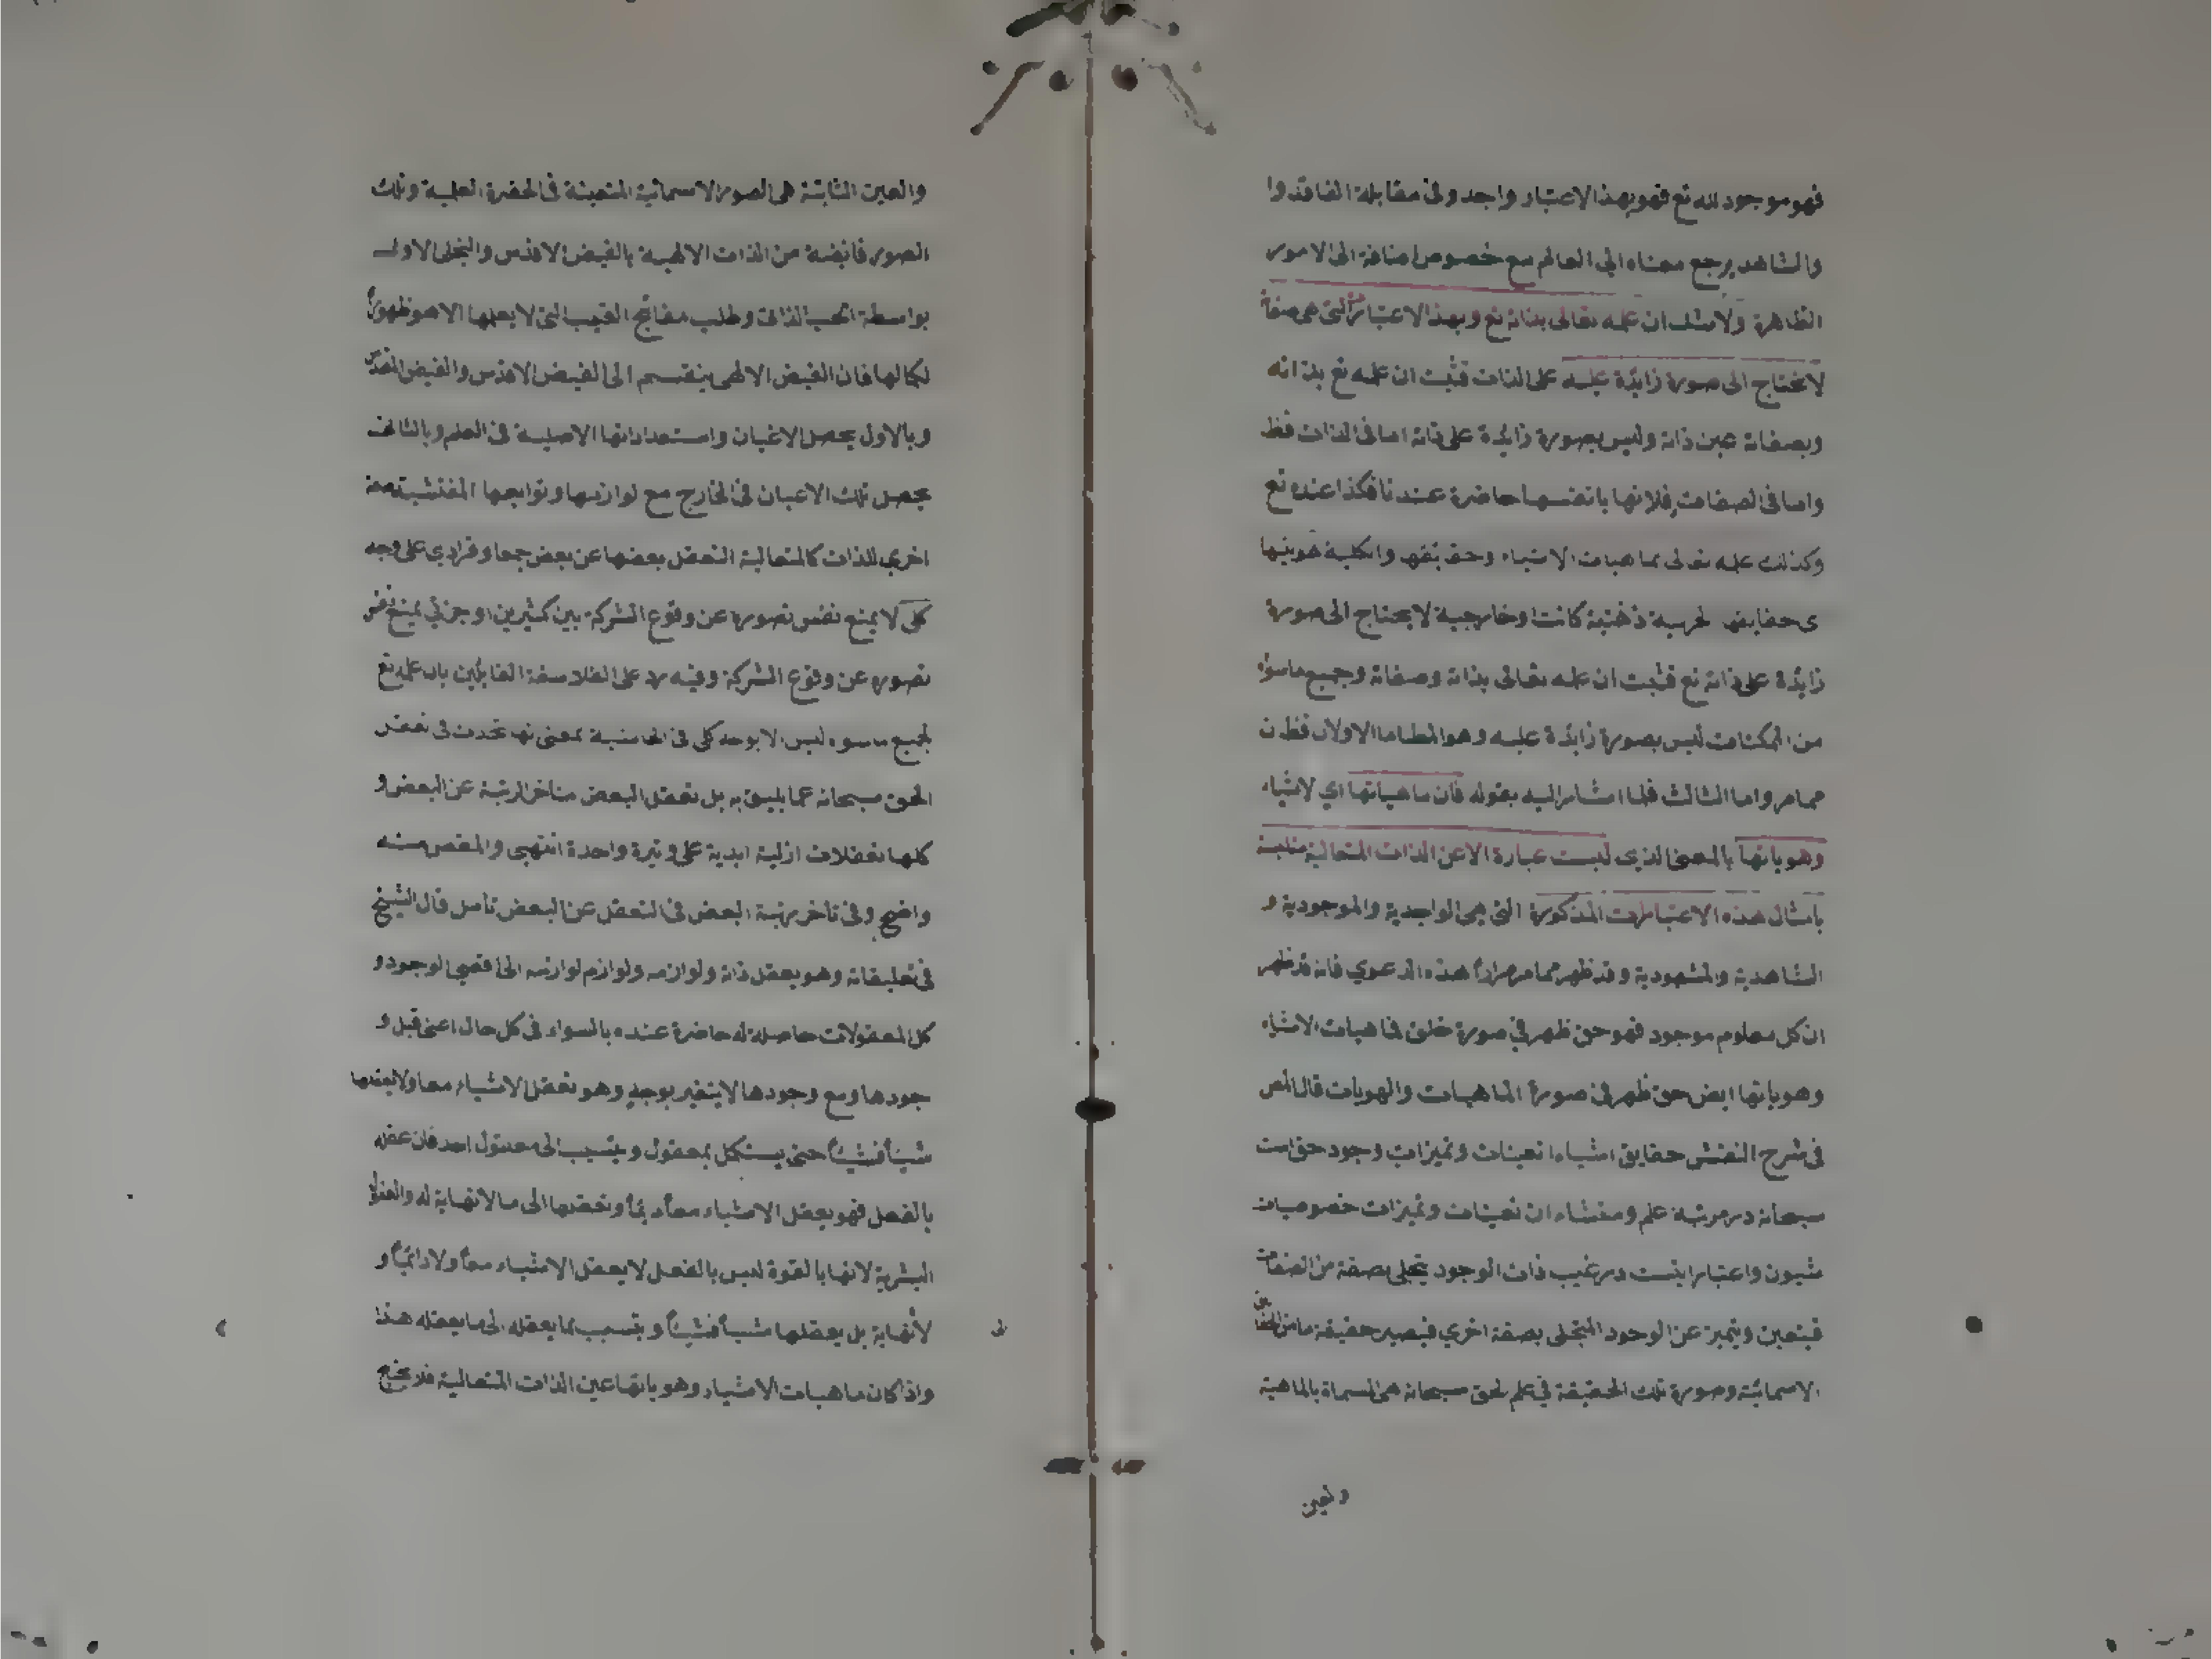 فهو موجود لله تع فهو بهذا الاعتبار واجد وفي مقابلة الفاقد وا
والشاهد يرجع معناه الى العالم مع خصوص اضافة الى الامور
الظاهرة ولا شك ان علمه تعالى بذاته تع وبهذا الاعتبار التي هي صفاته
لا يحتاج الى صورة زايدة عليه على الذات فثبت ان علمه تع بذاته
وبصفاته عين ذاته وليس بصورة زايدة على ذاته اما في الذات فظ
واما في الصفات فلانها بانفسها حاضرة عندنا فكذا عنده تع
وكذلك علمه تعالى بماهيات الاشياء وحقايقها الكلية هوياتها
ى حقايقها ذهنية كانت او خارجية لا يحتاج الى صورة
زايدة على ذاته تع فثبت ان علمه تعالى بذاته وصفاته وجميع ما سواه
من الممكنات ليس بصورة زايدة عليه وهو المط اما الاولان فظ
مما مر واما الثالث فلما اشار اليه بقوله فان ماهياتها اي الاشياء
وهوياتها بالمعنى الذي ليست عبارة الا عن الذات المتعالية متلبسة
بامثال هذه الاعتبارات المذكورة التي هي الواجدية والموجودية و
الشاهدية والمشهودية وقد ظهر مما مر مرارا هذه الدعوي فانه قد ظهر
ان كل معلوم موجود فهو حق ظهر في صورة خلق فماهيات الاشياء
وهوياتها ايض حق ظهر في صورة الماهيات والهويات قال المص
في شرح النقش حقايق اشياء تعينات وتميزات وجود حق است
سبحانه در مرتبه علم ومنشاء ان تعينات وتميزات خصوصيات
شيون واعتباراتيست در غيب ذات الوجود يتجلى بصفة من الصفات
فيتعين ويتميز عن الوجود المتجلى بصفة اخري فيصير حقيقة ما من الحقايق
الاسمائية وصورة تلك الحقيقة في علم الحق سبحانه هي المسماة بالماهية
والعين
والعين الثابتة هي الصور الاسمائية المتعينة في الحضرة العلمية وتلك
الصور فائضة من الذات الالهية بالفيض الاقدس والتجلى الاول
بواسطة الحب الذاتى وطلب مفاتح الغيب التى لا يعلمها الا هو ظهورها
لكمالها فان الفيض الالهى ينقسم الى الفيض الاقدس والفيض المقدس
وبالاول يحصل الاعيان واستعداداتها الاصلية في العلم وبالثانى
يحصل تلك الاعيان في الخارج مع لوازمها وتوابعها
اخري للذات كالمتعالية التعقل بعضها عن بعض جمعا وفرادي على وجه
كلى لا يمنع نفس تصوره عن وقوع الشركة بين كثيرين او جزئى يمنع نفس
تصوره عن وقوع الشركة وفيه رد على الفلاسفة القايلين بان علمه تع
لجميع ما سوه ليس الا بوجه كلى في الحاشية بمعنى تحدث في تعقل
الحق سبحانه عما يليق به بل تعقل البعض متاخر الرتبة عن البعض و
كلها تعقلات ازلية ابدية على وتيرة واحدة انتهى والمقص منه
واضح وفى تاخر مرتبة البعض فى التعقل عن البعض تامل قال الشيخ
في تعليقاته وهو يعقل ذاته ولوازمه ولوازم لوازمه الى اقصى الوجود و
كل المعقولات حاصلة له حاضرة عنده بالسواء فى كل حال اعنى قبل و
جودها ومع وجودها لا يتغير بوجه وهو تعقل الاشياء معا ولا يعقلها
شيئا فشيئا حتى يستكمل بمعقول الى معقول اخر فان عقله
بالفعل فهو يعقل الاشياء معا دائما وتعقلها الى ما لا نهاية له والعقول
البشرية لانها بالقوة ليس بالفعل لا يعقل الاشياء معا ولا دائما و
لا نهاية بل يعقلها شيئا فشيئا مما يعقله الى ما يعقله هذا
واذا كان ماهيات الاشياء وهوياتها عين الذات المتعالية فلا يحتج